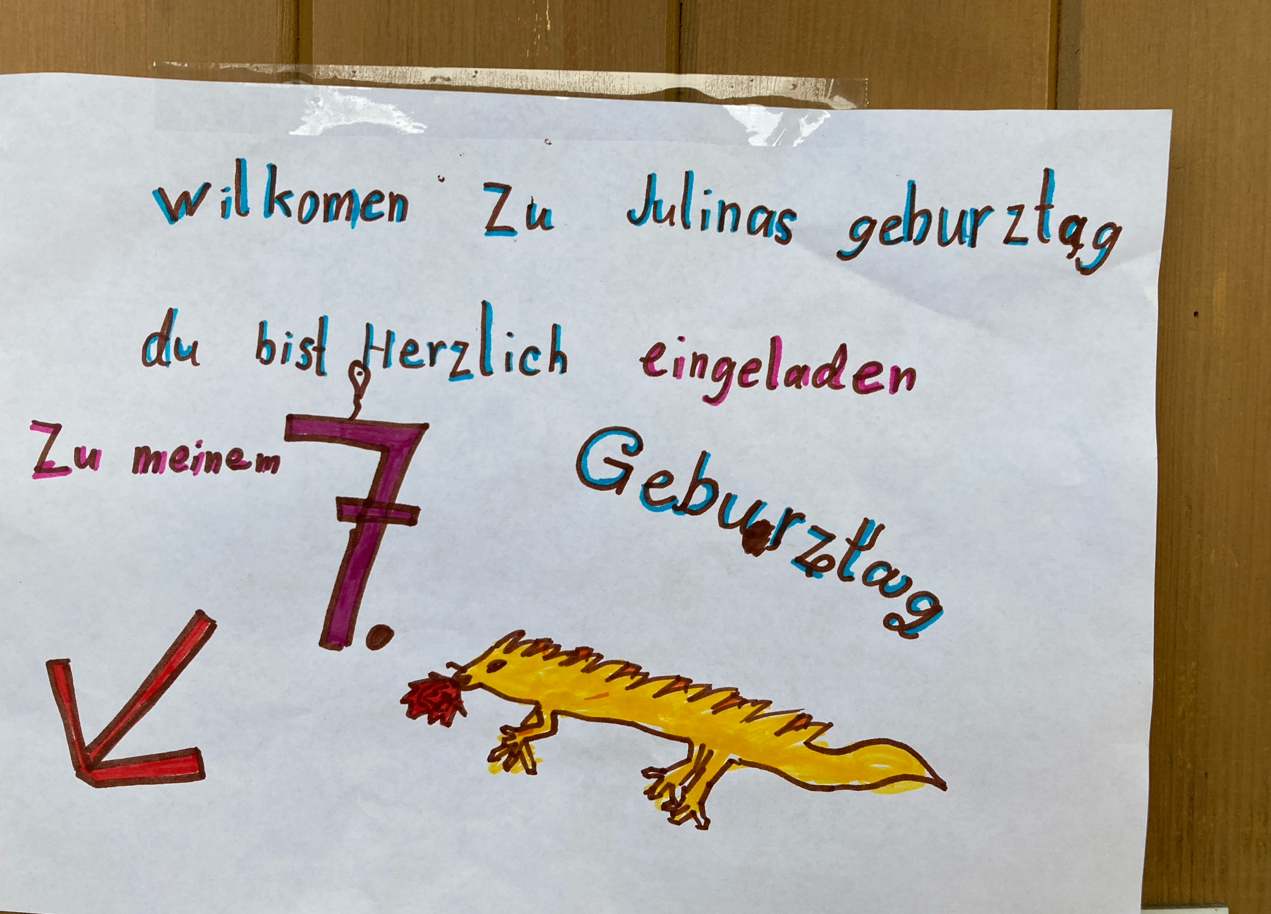 wilkomen zu Julinas geburztag
du bist Herzlich eingeladen
Zu meinem 7. Geburztag